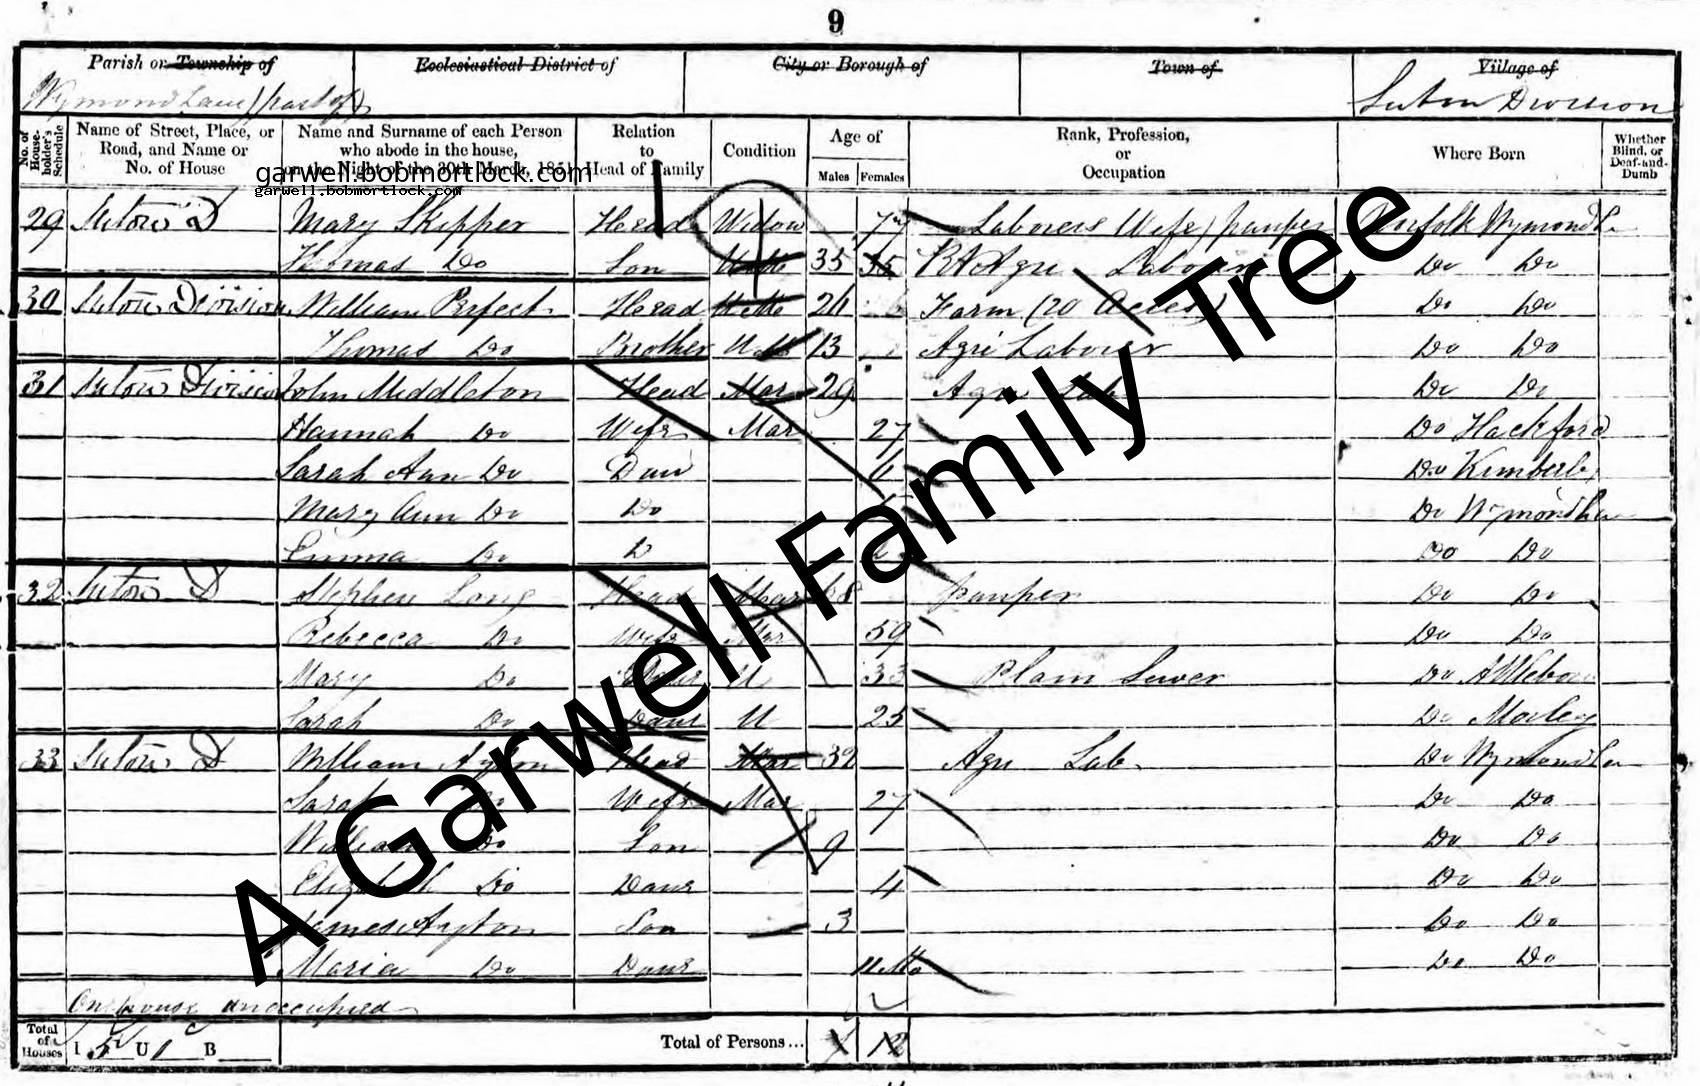 9
Parish or Township of Ecclesiastical District of City or Borough of Town of Village of
Wymondham (part of) Suton Division
No. of House-holder's Schedule Name of Street, Place, or Road, and Name or No. of House Name and Surname of each Person who abode in the house, on the Night of the 30th March, 1851 Relation to Head of Family Condition Age of Males Females Rank, Profession, or Occupation Where Born Whether Blind, or Deaf-and-Dumb
garwell.bobmortlock.com
garwell.bobmortlock.com
29 Suton D Mary Skipper Head Widow Laborers Wife pauper Norfolk Wymondh
Thomas Do Son 35 35 Agri Labourer Do Do
30 Suton Division William Perfect Head 26 Farm (20 Acres) Do Do
Thomas Do Brother 13 Agri Laborer Do Do
31 Suton Division John Middleton Head Mar 29 Agri Lab Do Do
Hannah Do Wife Mar 27 Do Hackford
Sarah Ann Do Dau Do Kimberley
Mary Ann Do Do Do Wymondham
Emma Do D Do Do
32 Suton D Stephen Long Head Mar 68 pauper Do Do
Rebecca Do Wife Mar 59 Do Do
Mary Do Daur U 33 Plain Sewer Do Attlebo
Sarah Do Daur U 25 Do Morley
33 Suton D William Ayton Head Mar 32 Agri Lab Do Wymondham
Sarah Do Wife Mar 27 Do Do
William Do Son 9 Do Do
Elizabeth Do Daur 4 Do Do
James Ayton Son 3 Do Do
Maria Do Daur 11 Mo Do Do
One house unoccupied
Total of Houses I 5 U 1 B Total of Persons... 12
A Garwell Family Tree